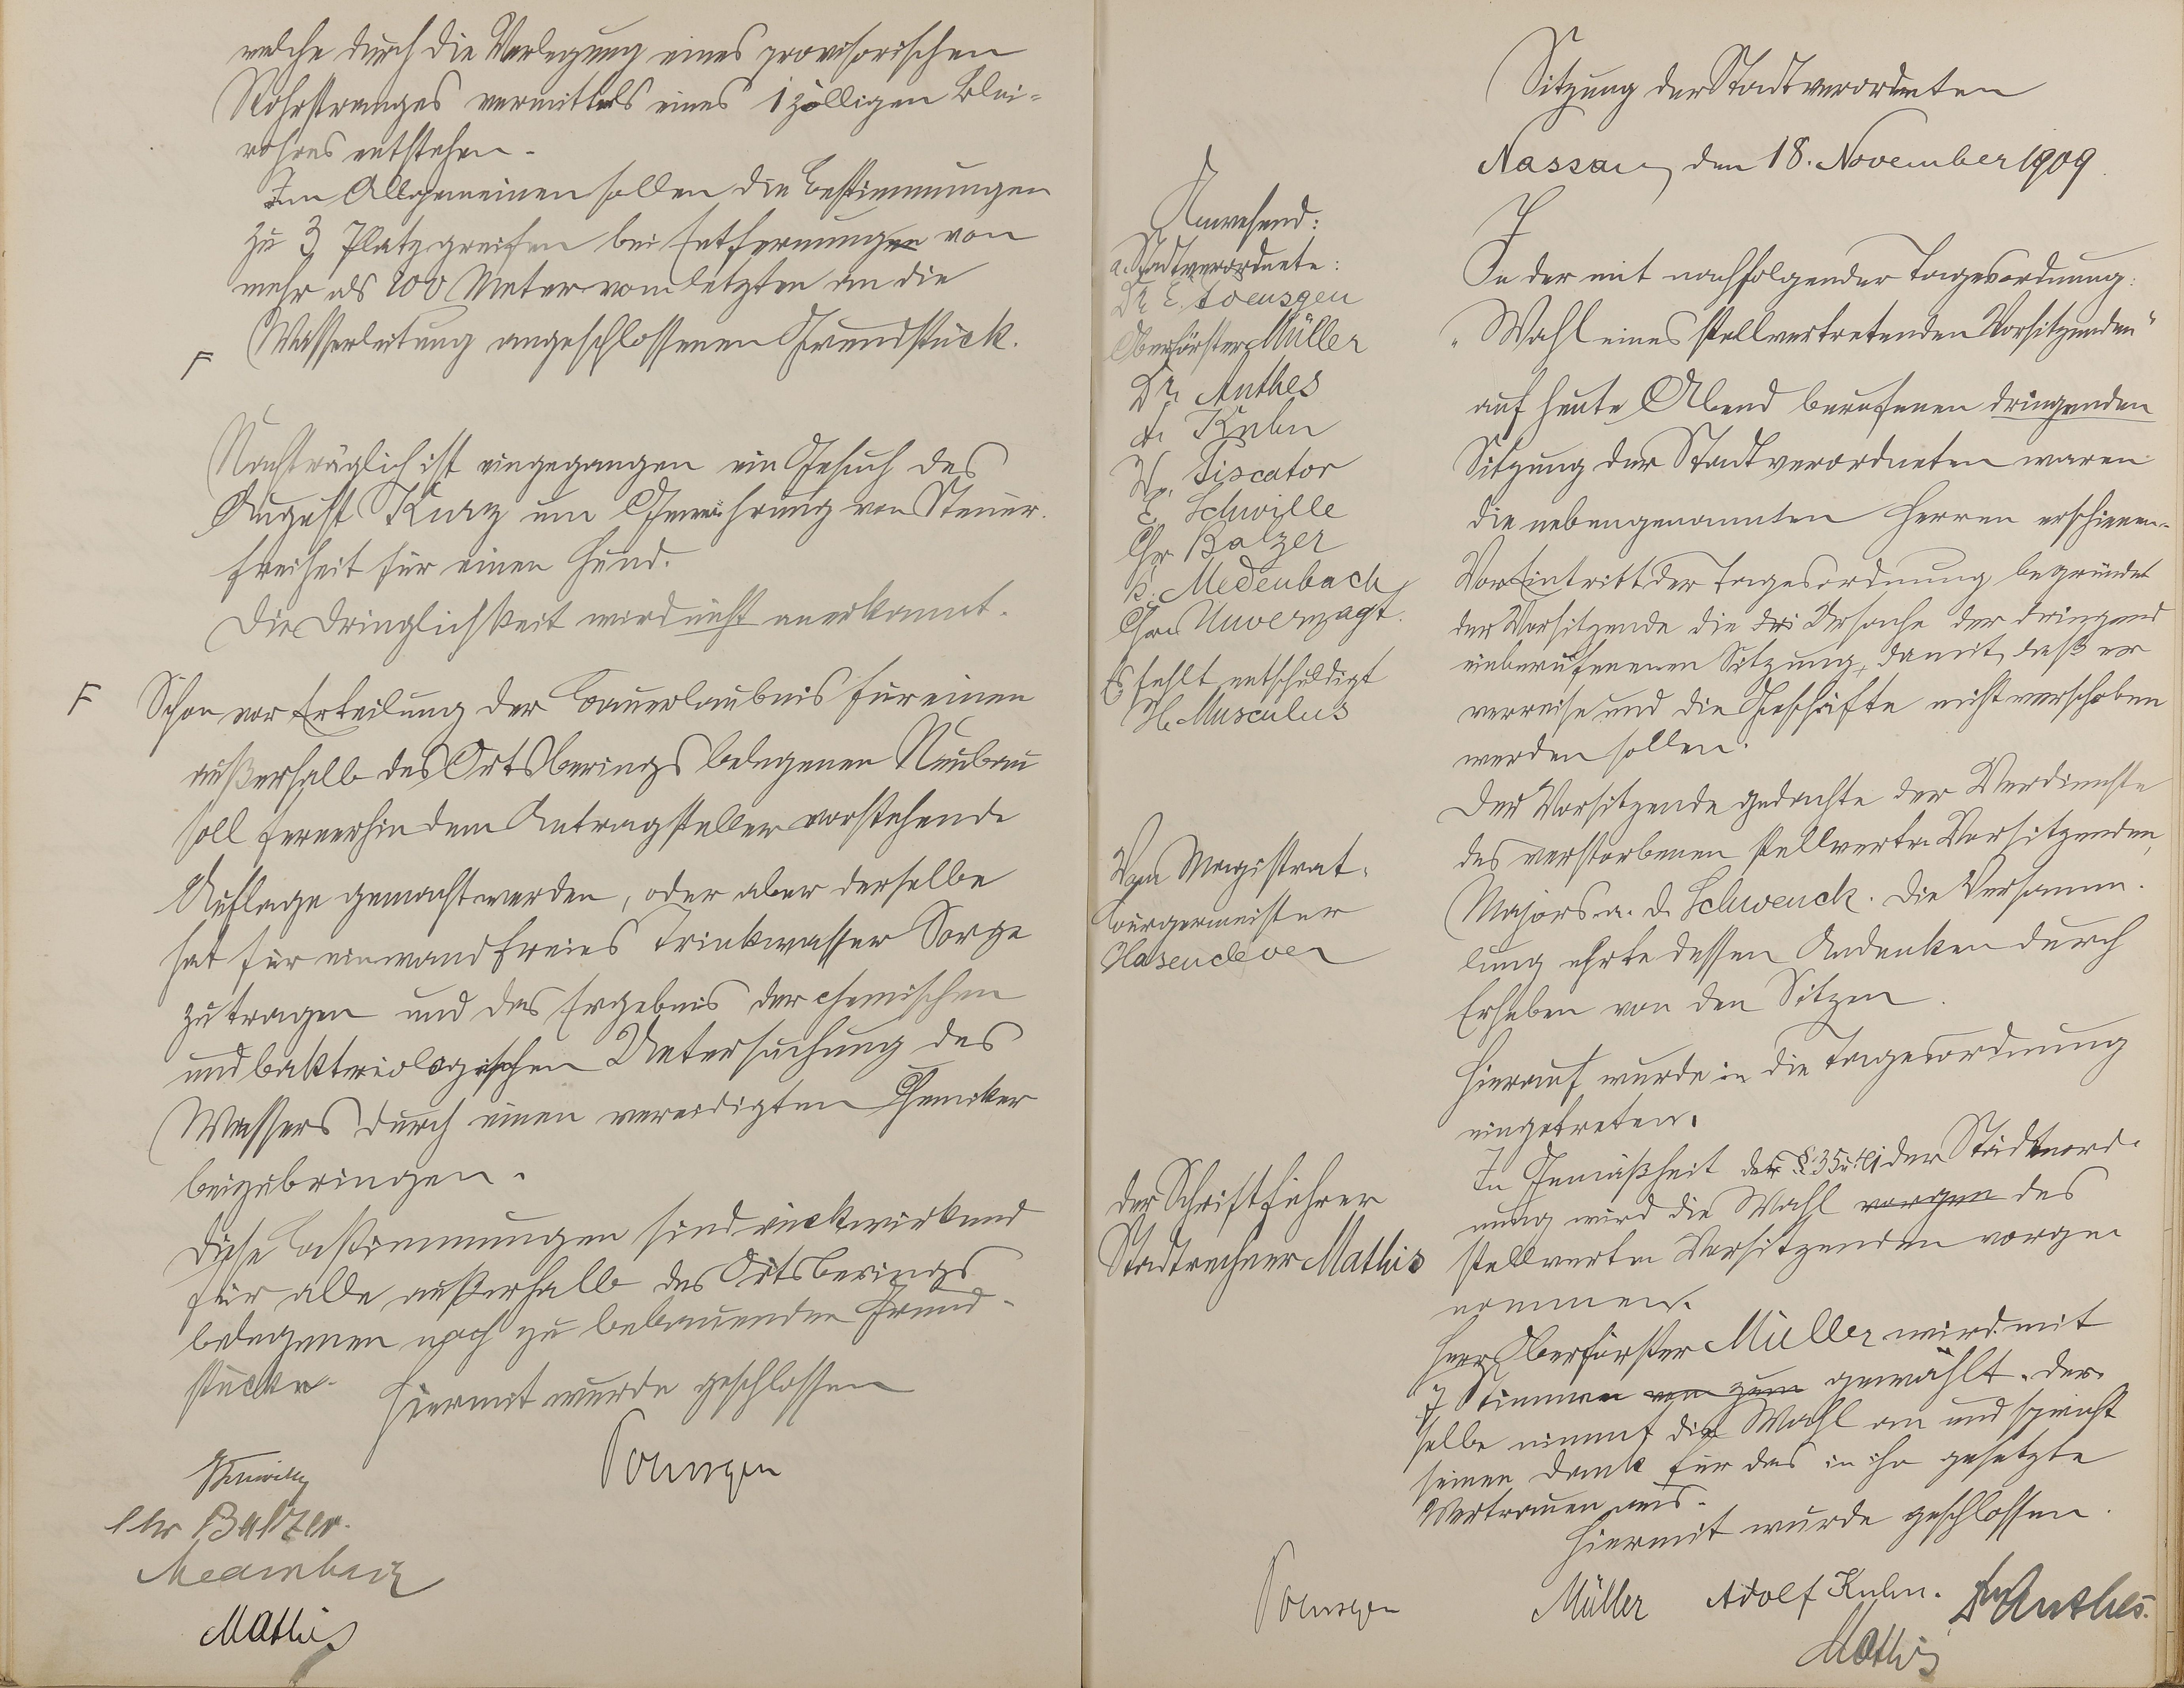 welche durch die Verlegung eines provisorischen
Rohrstranges vermittels eines 1 zölligen Blei-
rohres entstehen.
Im Allgemeinen sollen die Bestimmungen
zu 3, Platz greifen bei Entfernungen von
mehr als 200 Meter vom letzten an die
F Wasserleitung angeschlossenen Grundstück.
Nachträglich ist eingegangen ein Gesuch des
August Kurz um Gewährung von Steuer-
freiheit für einen Hund.
Die Dringlichkeit wird nicht anerkannt.
F Schon vor Erteilung der Bauerlaubnis für einen
außerhalb des Ortsberings belegenen Neubau
soll fernerhin dem Antragsteller vorstehende
Auflage gemacht werden, oder aber derselbe
hat für einwandfreies Trinkwasser Sorge
zu tragen und das Ergebnis der chemischen
und bakteriologischen Untersuchung des
Wassers durch einen vereidigten Chemiker
beizubringen.
Diese Bestimmungen sind rückwirkend
für alle außerhalb des Ortsberings
belegenen noch zu bebauenden Grund-
stücke.
Hiermit wurde geschlossen
Poensgen
Schwille
Chr Balzer.
Medenbach
Mathis
Sitzung der Stadtverordneten
Nassau, den 18. November 1909.
Anwesend:
a. Stadtverordnete:
Dr E. Poensgen
Oberförster Müller
Dr. Anthes
A. Kuhn
W. Piscator
E. Schwille
Chr. Balzer
K. Medenbach
Chr. Unverzagt.
Es fehlt entschuldigt
H. Musculus
Vom Magistrat.
Bürgermeister
Hasenclever
Der Schriftführer
Stadtrechner Mathis
In der mit nachfolgender Tagesordnung:
„Wahl eines stellvertretenden Vorsitzenden“
auf heute Abend berufenen dringenden
Sitzung der Stadtverordneten waren
die nebengenannten Herren erschienen.
Vor Eintritt der Tagesordnung begründet
der Vorsitzende die Ursache der dringend
einberufenenen Sitzung, damit, daß er
verreise und die Geschäfte nicht verschoben
werden sollen.
Der Vorsitzende gedachte der Verdienste
des verstorbenen stellvertr. Vorsitzenden,
Majors a. D. Schwenck. Die Versamm-
lung ehrte dessen Andenken durch
Erheben von den Sitzen.
Hierauf wurde in die Tagesordnung
eingetreten.
In Gemäßheit der § 35 u. 41 der Städteord-
nung wird die Wahl vorgen des
stellvertr. Vorsitzenden vorge-
nommen.
Herr Oberförster Müller wird mit
7 Stimmen von zum gewählt. Der-
selbe nimmt die Wahl an und spricht
seinen Dank für das in ihn gesetzte
Vertrauen aus.
Hiermit wurde geschlossen.
Poensgen Müller Adolf Kuhn. Dr Anthes.
Mathis